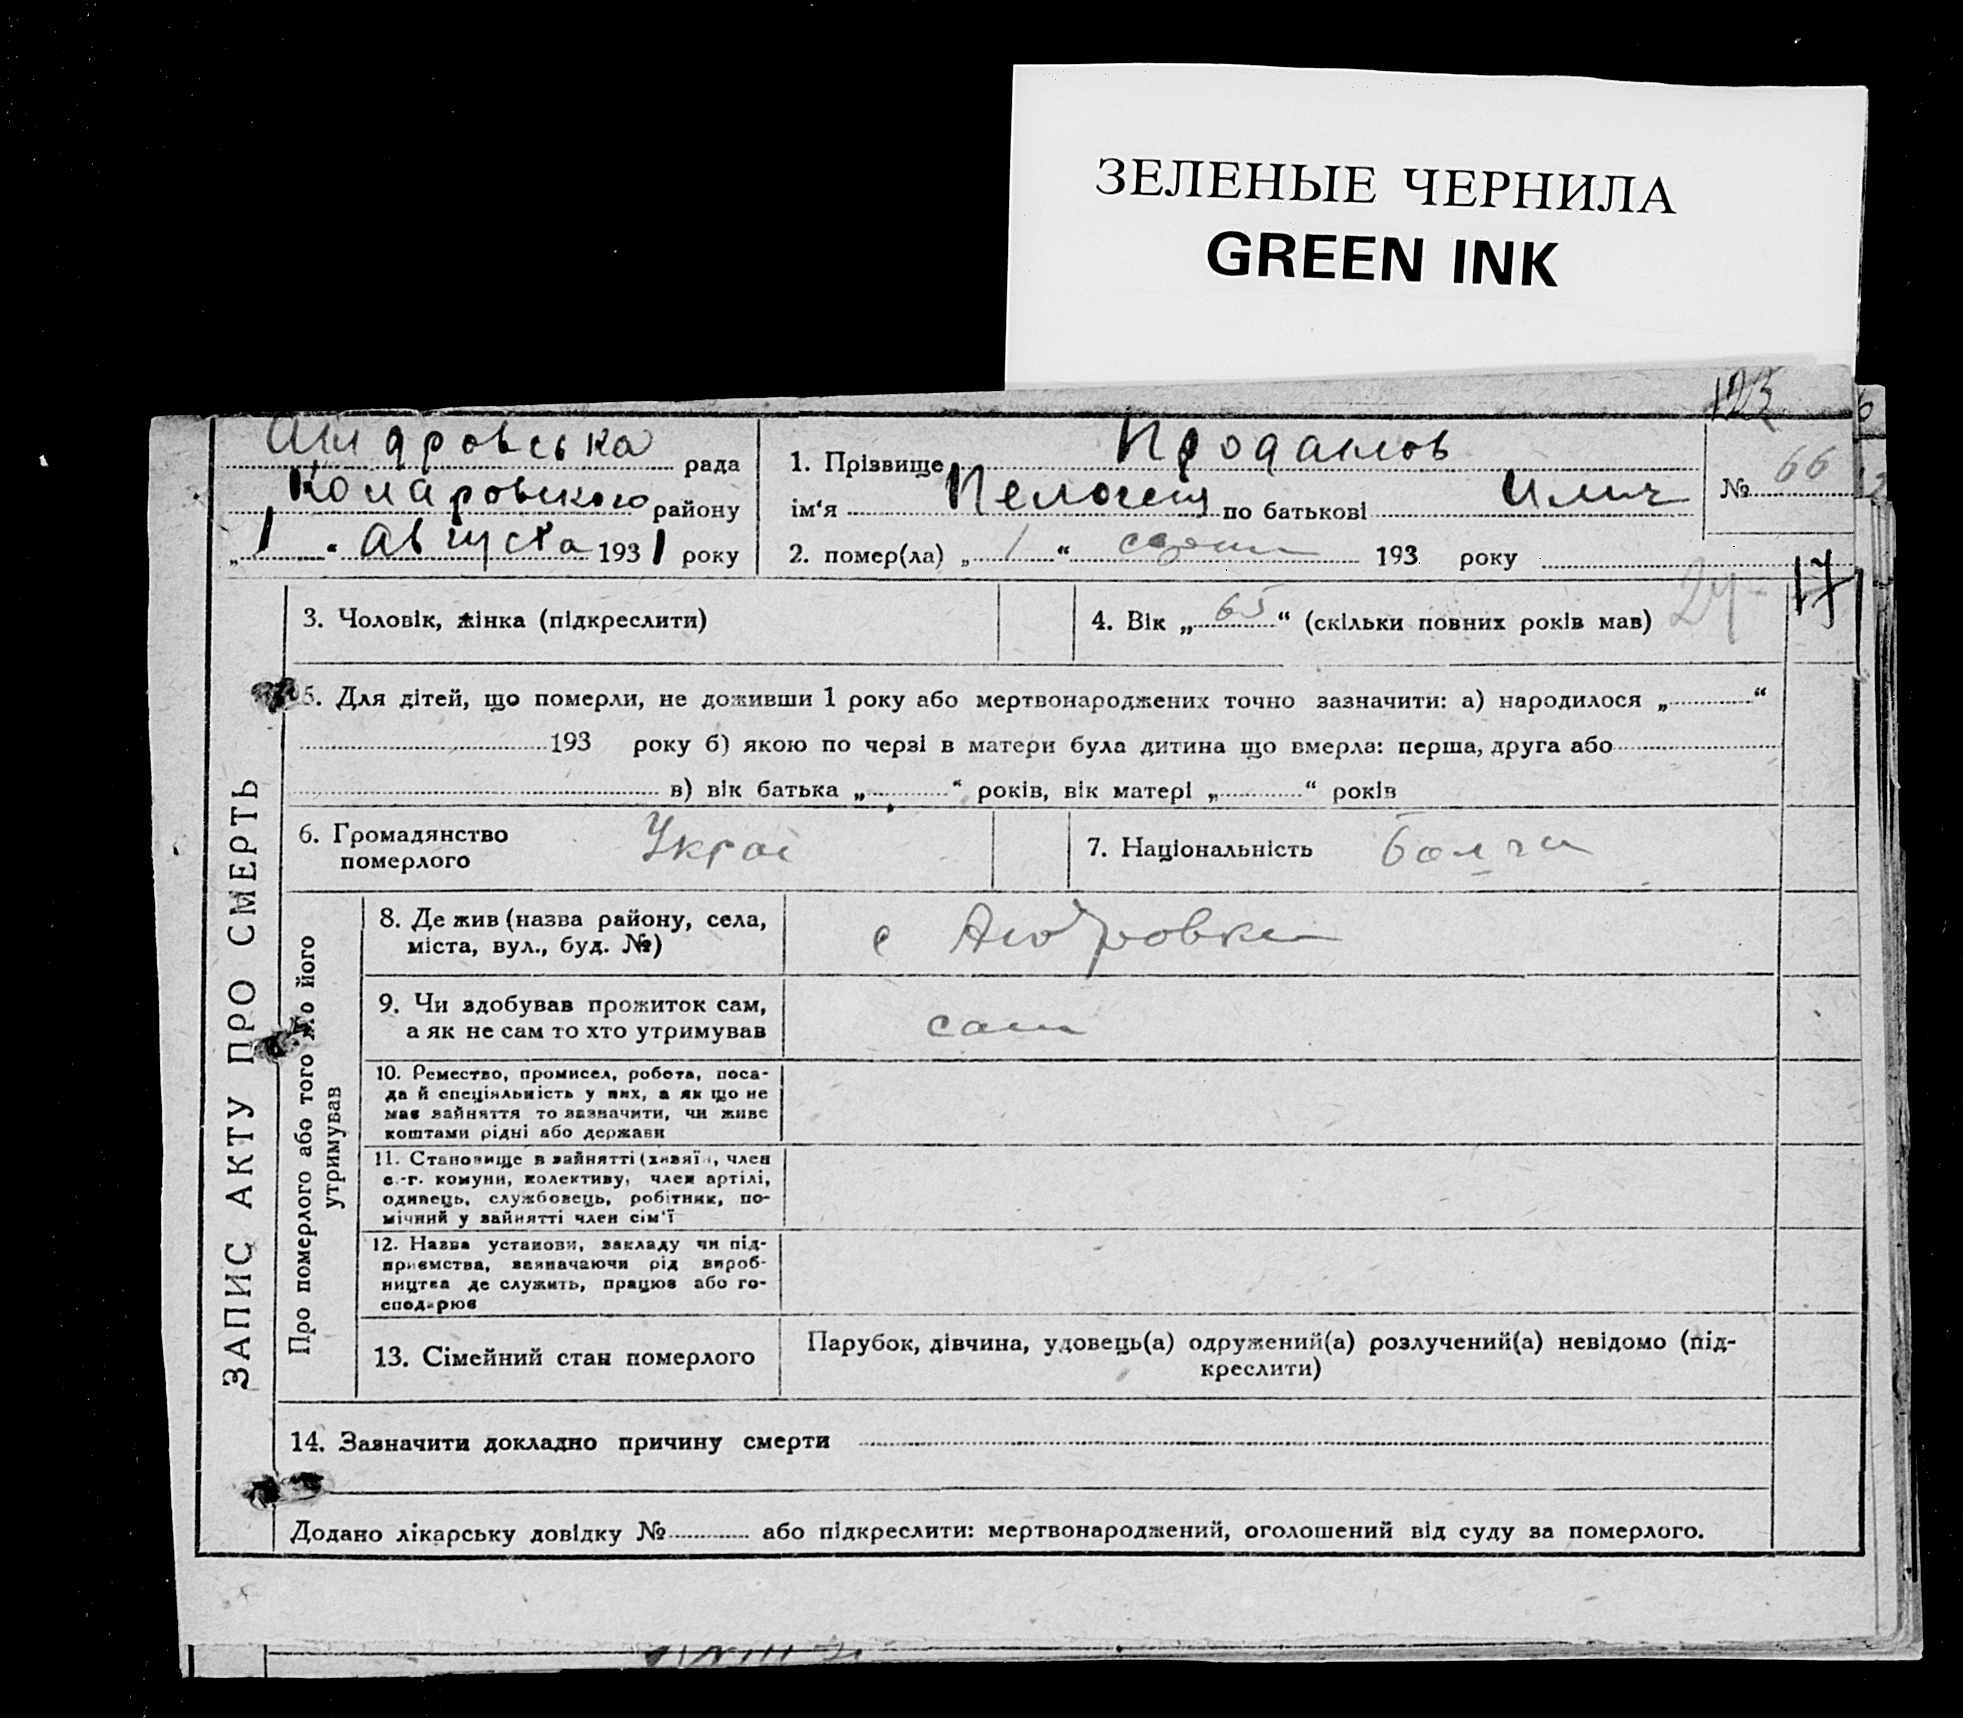 ЗЕЛЕНЫЕ ЧЕРНИЛА
GREEN INK
123
рада
району
„1“ Августа 1931 року
1. Прізвище Проданов
ім'я по батькові Илич
№ 66
2. помер(ла) „1“ 193 року
17
3. Чоловік, жінка (підкреслити)
4. Вік „65“ (скільки повних років мав)
24
5. Для дітей, що померли, не доживши 1 року або мертвонароджених точно зазначити: а) народилося „ “
193 року б) якою по черзі в матери була дитина що вмерла: перша, друга або
в) вік батька „ “ років, вік матері „ “ років
6. Громадянство
померлого
Украі
7. Національність Болга
8. Де жив (назва району, села,
міста, вул., буд. №)
с
9. Чи здобував прожиток сам,
а як не сам то хто утримував
сам
10. Ремество, промисел, робота, поса-
да й спеціяльність у них, а як що не
має зайняття то зазначити, чи живе
коштами рідні або держави
11. Становище в зайнятті (хазяїн, член
с.-г. комуни, колективу, член артілі,
одинець, службовець, робітник, по-
мічний у зайнятті член сім'ї
12. Назва установи, закладу чи під-
приємства, зазначаючи рід вироб-
ництва де служить, працює або го-
сподарює
13. Сімейний стан померлого
Парубок, дівчина, удовець(а) одружений(а) розлучений(а) невідомо (під-
креслити)
14. Зазначити докладно причину смерти
Додано лікарську довідку № або підкреслити: мертвонароджений, оголошений від суду за померлого.
ЗАПИС АКТУ ПРО СМЕРТЬ
Про померлого або того хто його
утримував